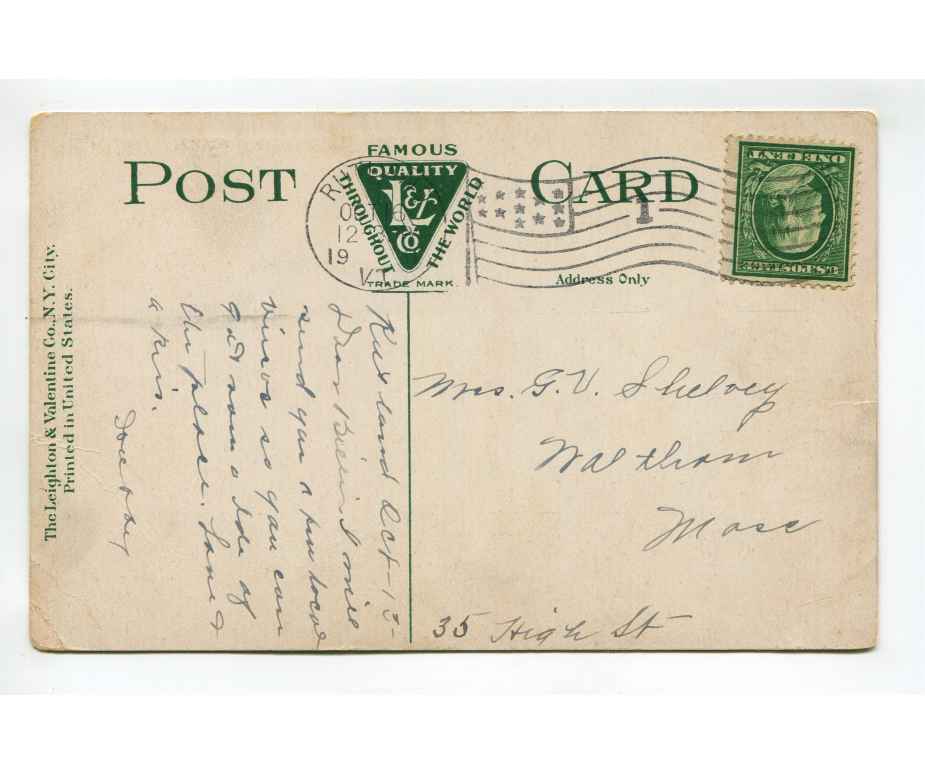 POST CARD
FAMOUS
QUALITY
THROUGHOUT
THE WORLD
L & V
CO
TRADE MARK.
Address Only
The Leighton & Valentine Co., N.Y. City.
Printed in United States.
OCT
12
19
VT.
1
ONE CENT
U.S. POSTAGE
Rutland Oct-13-
Dear I will
send you a few local
views so you can
get some idea of
the place. Love &
a kiss.
Mrs. G. V. Shelvey
Waltham
Mass
35 High St